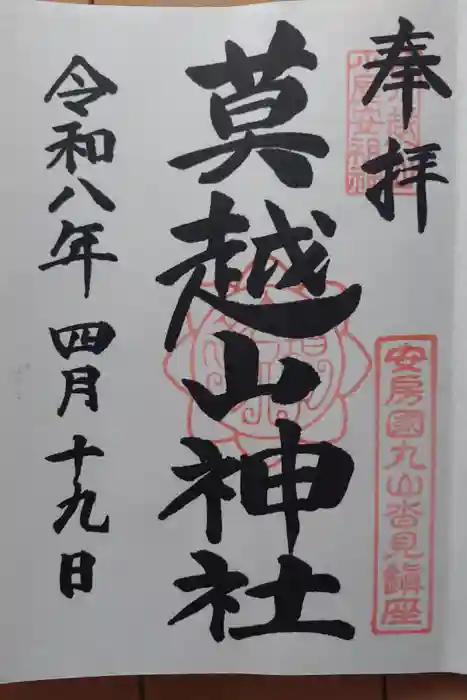 奉拝
安房國丸山沓見鎮座
莫越山神社
令和八年 四月十九日